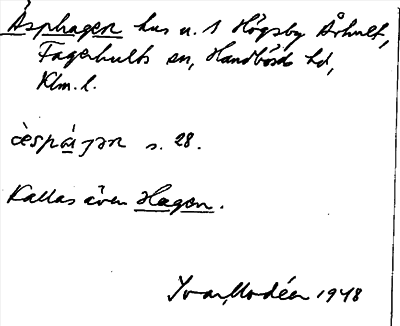 Åsphagen hus u. 1 Högsby Århult,
Fagerhults sn, Handbörds hd,
Klm. l.
s. 28.
Kallas även Hagen.
Ivar Modéer 1948